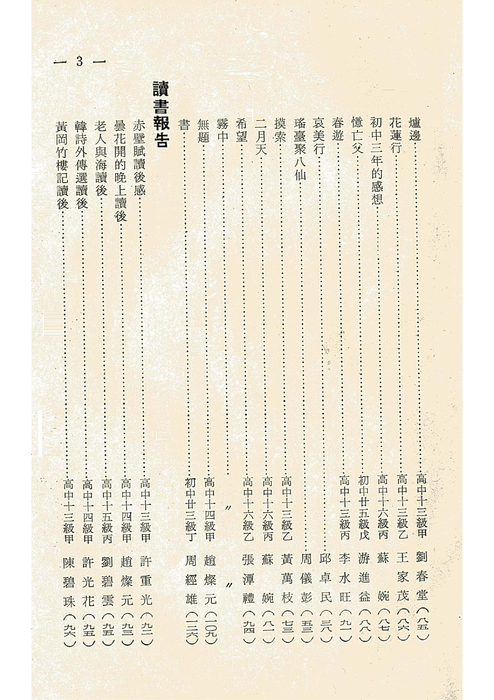 — 3 —
爐邊……高中十三級甲 劉春堂(八五)
花蓮行……高中十三級乙 王家茂(八六)
初中三年的感想……高中十六級丙 蘇婉(八七)
憶亡父……初中廿五級戊 游進益(八八)
春遊……高中十三級丙 李水旺(九一)
哀美行……邱卓民(三八)
瑤臺聚八仙……周儀彭(五三)
摸索……高中十三級乙 黃萬枝(七三)
二月天……高中十六級丙 蘇婉(八一)
希望……高中十六級乙 張潭禮(九四)
霧中……〃 〃
無題……高中十四級甲 趙燦元(一〇九)
書……初中廿三級丁 周經雄(一二六)
讀書報告
赤壁賦讀後感……高中十三級甲 許重光(九二)
曇花開的晚上讀後……高中十四級甲 趙燦元(九三)
老人與海讀後……高中十五級丙 劉碧雲(九五)
韓詩外傳選讀後……高中十四級甲 許光花(九五)
黃岡竹樓記讀後……高中十三級甲 陳碧珠(九六)